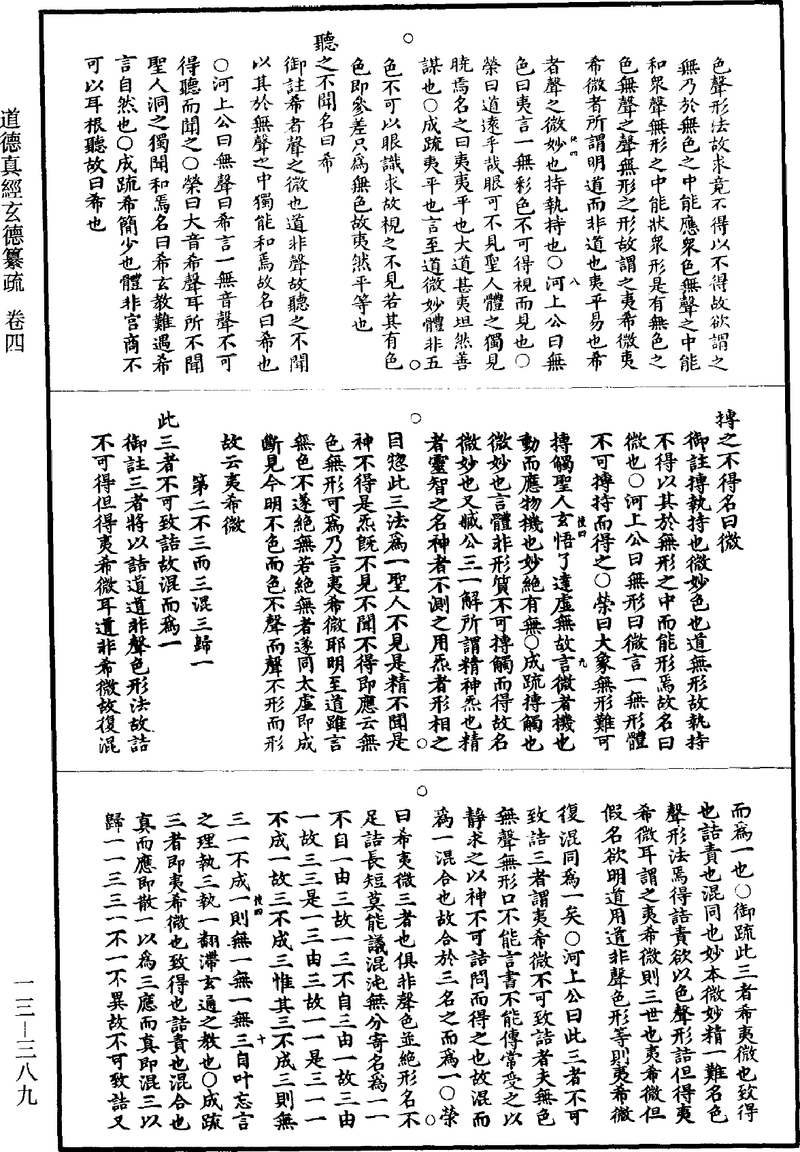 道德真經玄德纂疏　卷四
色聲形法故求竟不得以不得故欲謂之
無乃於無色之中能應衆色無聲之中能
和衆聲無形之中能狀衆形是有無色之
色無聲之聲無形之形故謂之夷希微夷
希微者所謂明道而非道也夷平易也希
者聲之微妙也持執持也○河上公曰無
色曰夷言一無彩色不可得視而見也○
榮曰道遠乎哉眼可不見聖人體之獨見
曉焉名之曰夷夷平也大道甚夷坦然善
謀也○成疏夷平也言至道微妙體非五
色不可以眼識求故視之不見若其有色
色即參差只爲無色故夷然平等也
聽之不聞名曰希
御註希者聲之微也道非聲故聽之不聞
以其於無聲之中獨能和焉故名曰希也
○河上公曰無聲曰希言一無音聲不可
得聽而聞之○榮曰大音希聲耳所不聞
聖人洞之獨聞和焉名曰希玄教難遇希
言自然也○成疏希簡少也體非宫商不
可以耳根聽故曰希也
搏之不得名曰微
御註搏執持也微妙色也道無形故執持
不得以其於無形之中而能形焉故名曰
微也○河上公曰無形曰微言一無形體
不可搏持而得之○榮曰大象無形難可
搏觸聖人玄悟了達虚無故言微者機也
動而應物機也妙絶有無○成疏搏觸也
微妙也言體非形質不可搏觸而得故名
微妙也又臧公三一解所謂精神炁也精
者靈智之名神者不測之用炁者形相之
目惣此三法爲一聖人不見是精不聞是
神不得是炁旣不見不聞不得即應云無
色無形可爲乃言夷希微耶明至道雖言
無色不遂絶無若絶無者遂同太虚即成
斷見今明不色而色不聲而聲不形而形
故云夷希微
第二不三而三混三歸一
此三者不可致詰故混而爲一
御註三者將以詰道道非聲色形法故詰
不可得但得夷希微耳道非希微故復混
而爲一也○御疏此三者希夷微也致得
也詰責也混同也妙本微妙精一難名色
聲形法焉得詰責欲以色聲形詰但得夷
希微耳謂之夷希微則三世也夷希微但
假名欲明道用道非聲色形等則夷希微
復混同爲一矣○河上公曰此三者不可
致詰三者謂夷希微不可致詰者夫無色
無聲無形口不能言書不能傳常受之以
静求之以神不可詰問而得之也故混而
爲一混合也故合於三名之而爲一○榮
曰希夷微三者也俱非聲色並絶形名不
足詰長短莫能議混沌無分寄名爲一一
不自一由三故一三不自三由一故三由
一故三三是一三由三故一一是三一一
不成一故三不成三惟其三不成三則無
三一不成一則無一無一無三自叶忘言
之理執三執一翻滯玄通之教也○成疏
三者即夷希微也致得也詰責也混合也
真而應即散一以爲三應而真即混三以
歸一一三三一不一不異故不可致詰又
一三—三八九